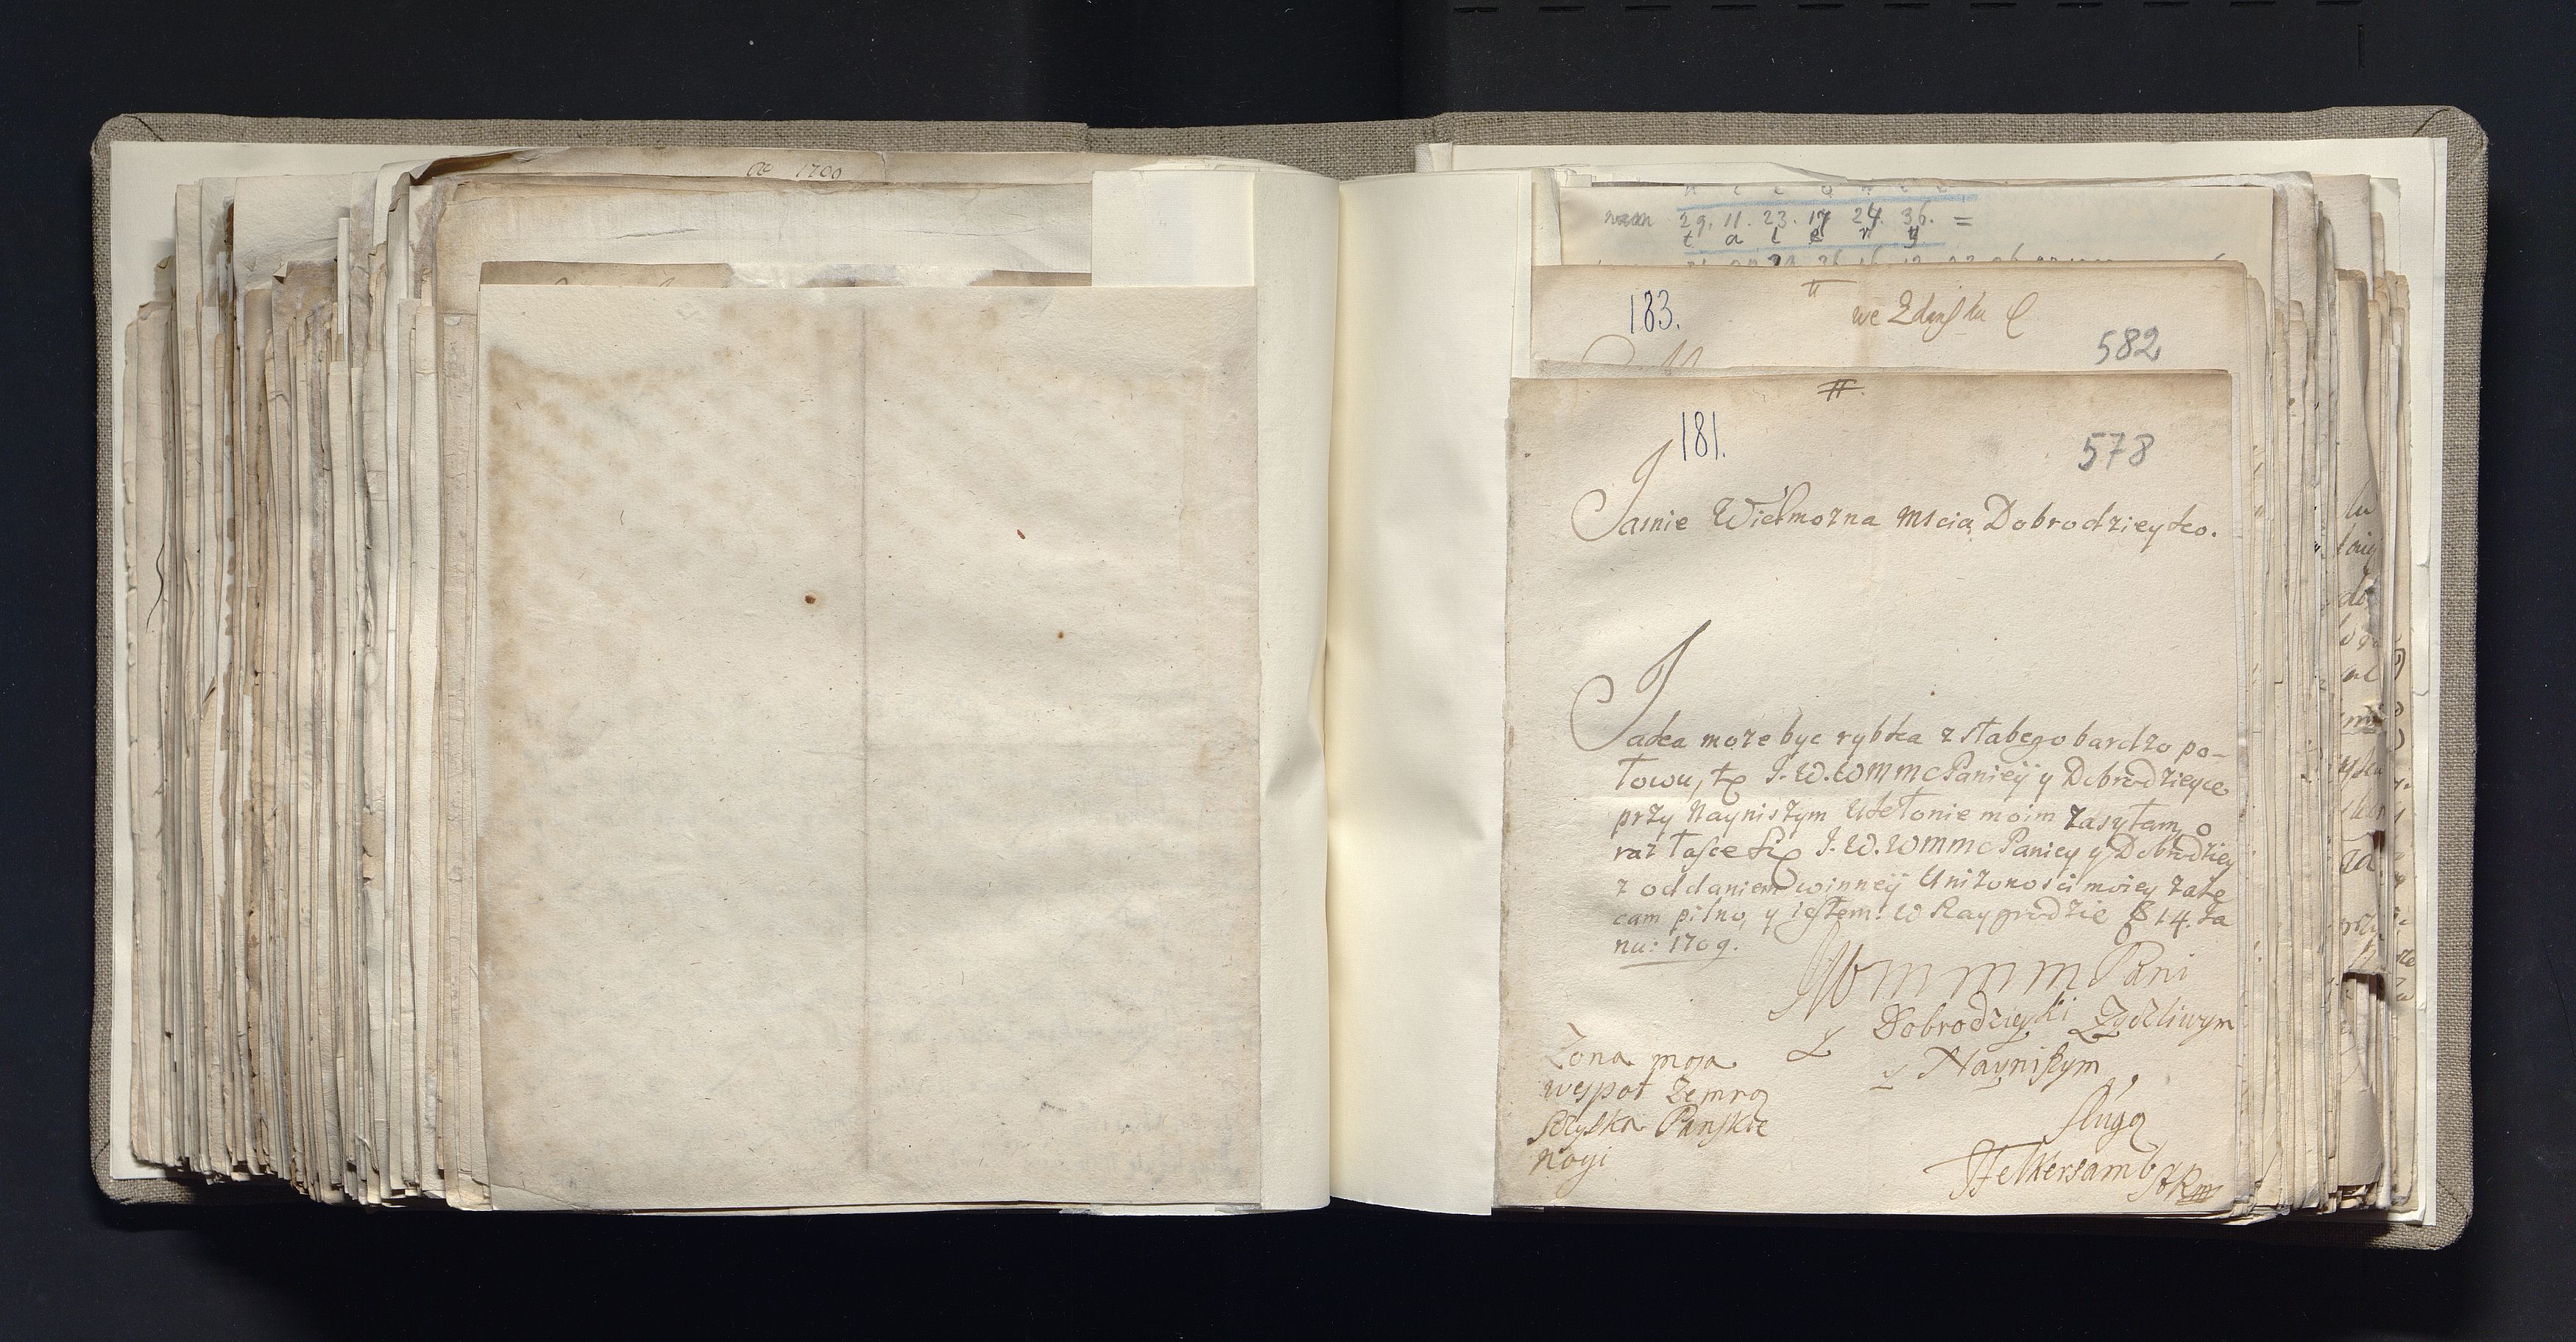 A̅o̅ 1700
wam 29. 11. 23. 17 24. 36. =
t a l e r y
183.
we Zduńsku
582
#.
181.
578
Jasnie Wielmozna Mscia Dobrodzieyko.
Jaka moze byc rybka z słabego bardzo po-
łowu, tę J. W. WMMC Panieÿ y Dobrodzieyce
przy Nayniszym Ukłonie moim zasyłam, o
raz łasce się J. W. WMMC Paniey y Dobrodziey
z oddaniem winneÿ Unizonosci moiey zale
cam pilno, y iestem: W Raygrodzie 14. Ja
nu: 1709.
WMMM Pani
Dobrodzieyki Zyczliwym
y Nayniszym
sługą
Felkersamb
Zona moja
wespoł zemną
sciska Panskie
nogi